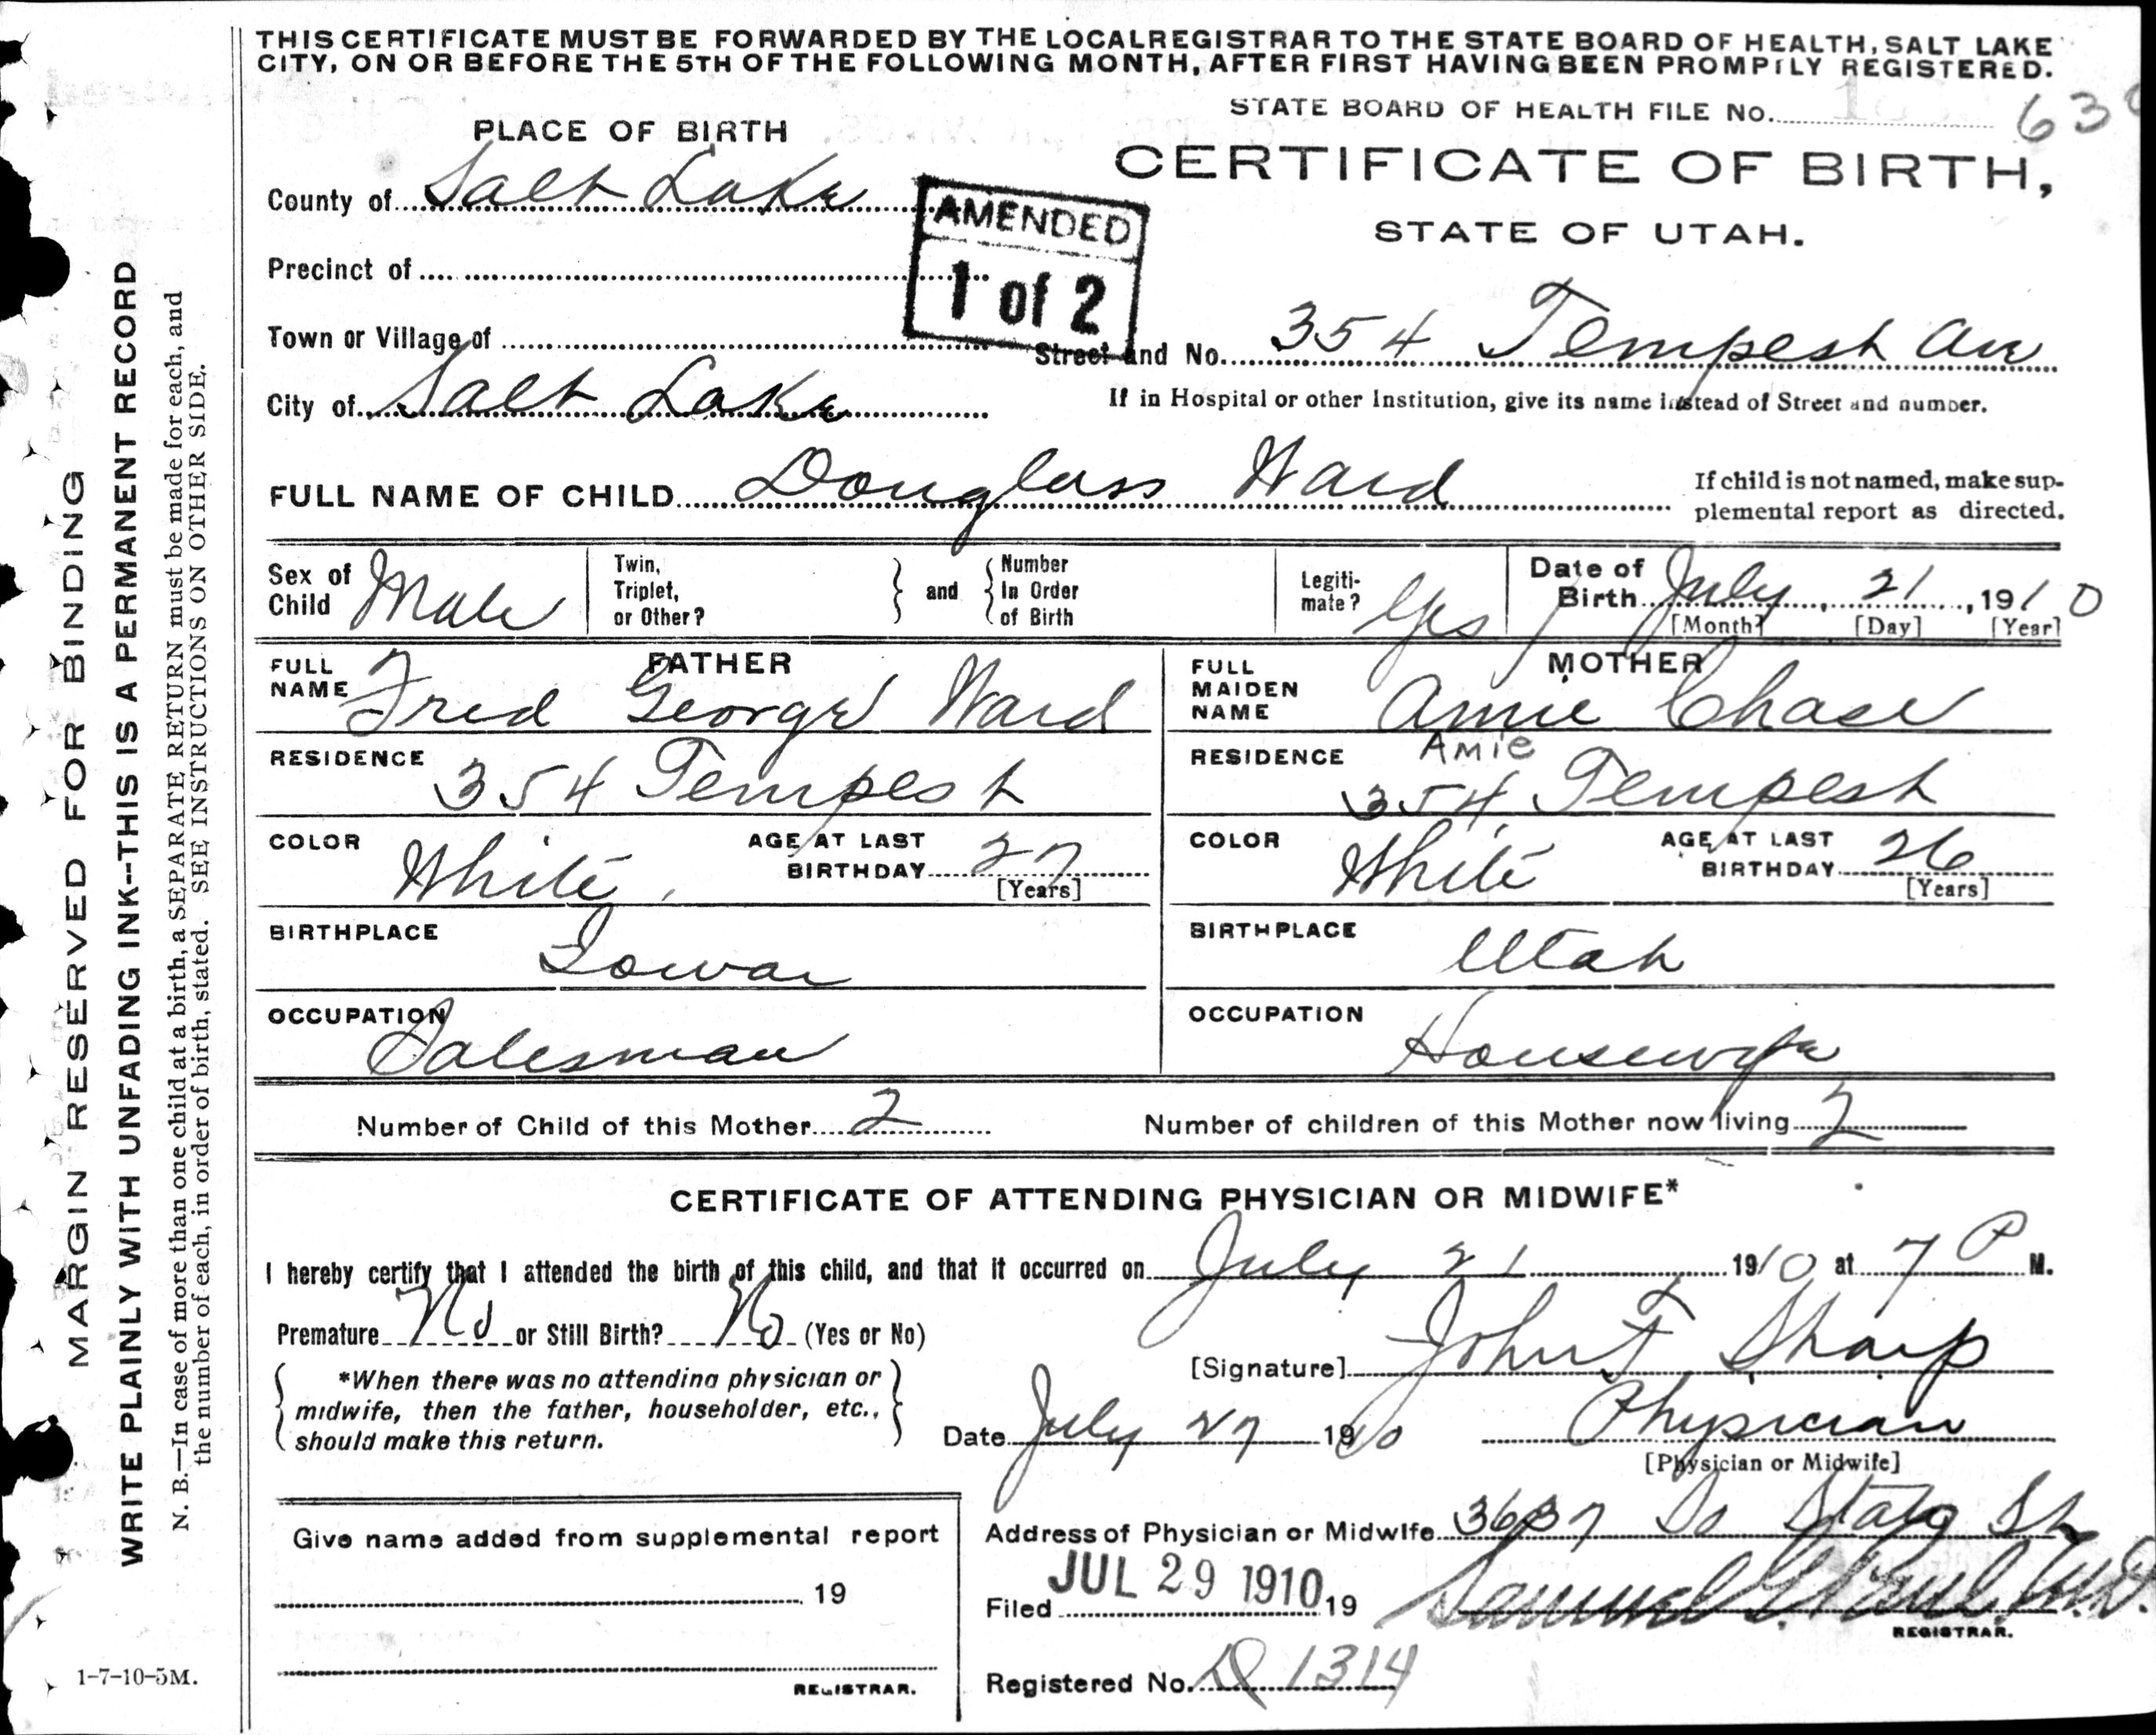 THIS CERTIFICATE MUST BE FORWARDED BY THE LOCAL REGISTRAR TO THE STATE BOARD OF HEALTH, SALT LAKE
CITY, ON OR BEFORE THE 5TH OF THE FOLLOWING MONTH, AFTER FIRST HAVING BEEN PROMPTLY REGISTERED.
STATE BOARD OF HEALTH FILE No. 63
PLACE OF BIRTH
CERTIFICATE OF BIRTH,
STATE OF UTAH.
County of Salt Lake
AMENDED
1 of 2
Precinct of
Town or Village of
Street and No. 354 Tempest Ave
City of Salt Lake
If in Hospital or other Institution, give its name instead of Street and number.
FULL NAME OF CHILD Douglass Ward
If child is not named, make sup-
plemental report as directed.
Sex of Child Male
Twin, Triplet, or Other?
and
Number In Order of Birth
Legiti-
mate? Yes
Date of Birth July, 21, 1910
[Month] [Day] [Year]
FATHER
FULL NAME Fred George Ward
RESIDENCE 354 Tempest
COLOR White
AGE AT LAST BIRTHDAY 27
[Years]
BIRTHPLACE Iowa
OCCUPATION Salesman
MOTHER
FULL MAIDEN NAME Amie Chase
Amie
RESIDENCE 354 Tempest
COLOR White
AGE AT LAST BIRTHDAY 26
[Years]
BIRTHPLACE Utah
OCCUPATION Housewife
Number of Child of this Mother 2
Number of children of this Mother now living 2
CERTIFICATE OF ATTENDING PHYSICIAN OR MIDWIFE*
I hereby certify that I attended the birth of this child, and that it occurred on July 21 1910 at 7 P M.
Premature No or Still Birth? No (Yes or No)
[Signature] John F Sharp
*When there was no attending physician or
midwife, then the father, householder, etc.,
should make this return.
Date July 27 1910
Physician
[Physician or Midwife]
Give name added from supplemental report
19
REGISTRAR.
Address of Physician or Midwife 3637 So State St
Filed JUL 29 1910 19
Samuel G. Paul M.D.
REGISTRAR.
Registered No. D 1314
MARGIN RESERVED FOR BINDING
WRITE PLAINLY WITH UNFADING INK--THIS IS A PERMANENT RECORD
N. B.—In case of more than one child at a birth, a SEPARATE RETURN must be made for each, and
the number of each, in order of birth, stated. SEE INSTRUCTIONS ON OTHER SIDE.
1-7-10-5M.